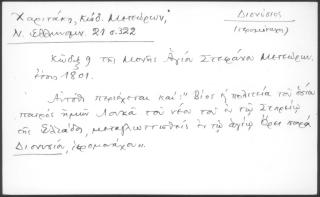 Χαριτάκη, Κώδ. Μετεώρων,
Ν. Ελληνομν. 21 σ. 322
Διονύσιος
(ιερομόναχος)
Κῶδιξ 9 τῆς Μονῆς Ἁγίου Στεφάνου Μετεώρων.
ἔτους 1801.
Αὐτόθι περιέχεται καί: "Βίος κ πολιτεία τοῦ ὁσίου
πατρός ἡμῶν Λουκᾶ τοῦ νέου τοῦ ἐν τῷ Στειρίῳ
τῆς Ἑλλάδος, μεταγλωττισθείς ἐν τῷ ἁγίῳ Ὄρει παρά
Διονυσίου, ἱερομονάχου".